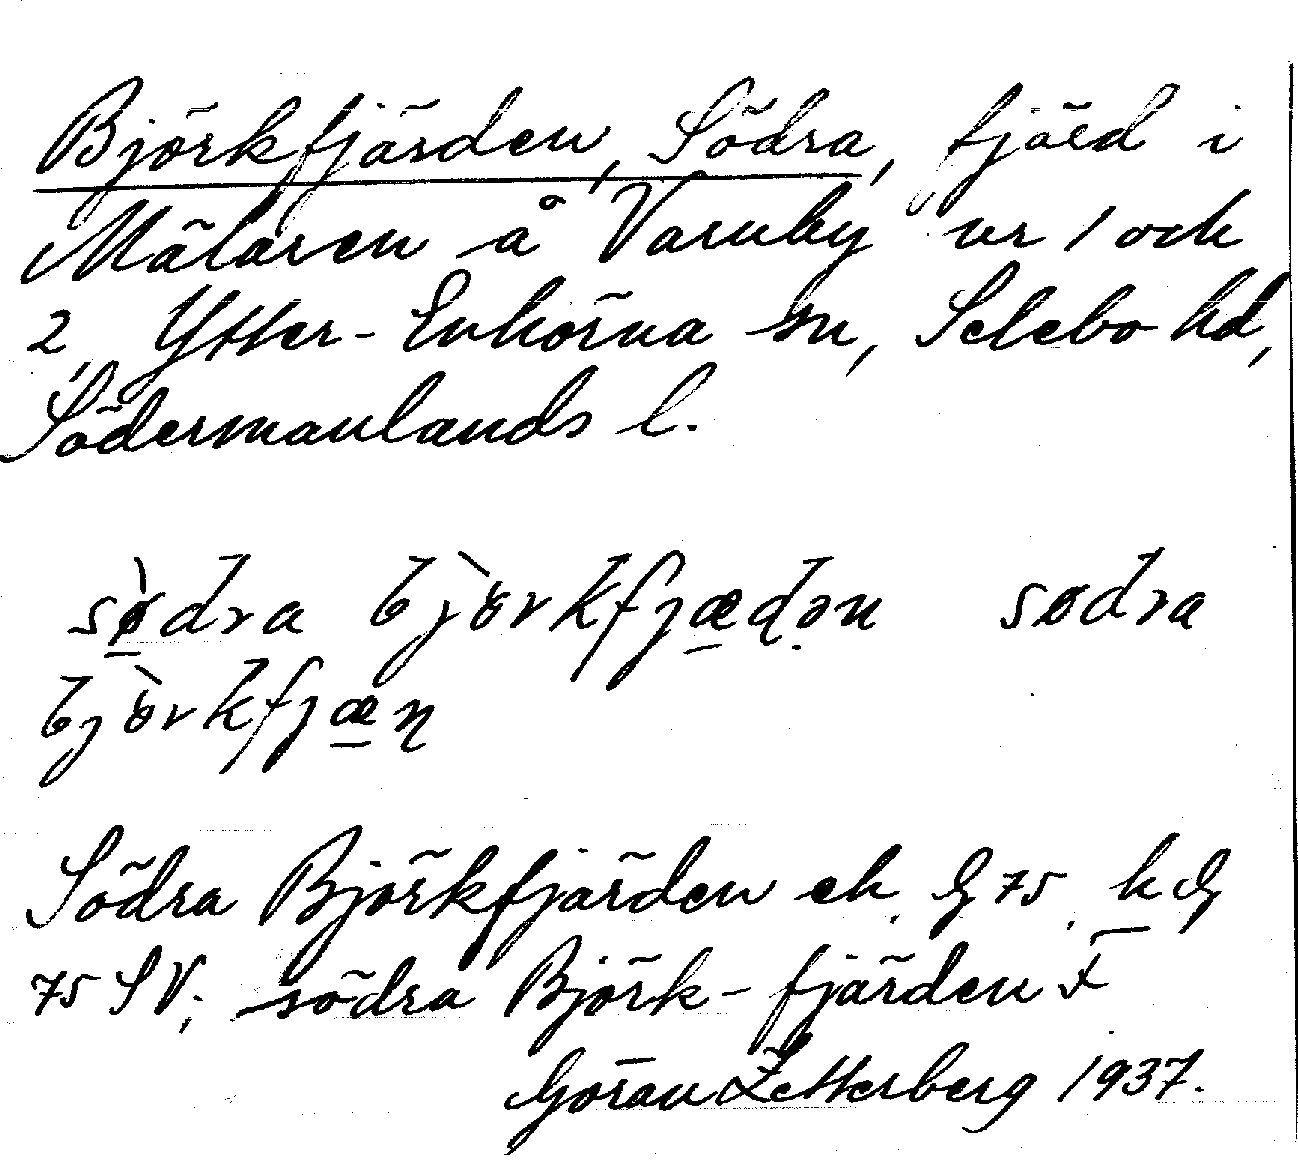 Björkfjärden, Södra, fjärd i
Mälaren å Varuby nr 1 och
2, Ytter-Enhörna sn, Selebo hd,
Södermanlands l.
sø̀dra bjɵ̀rkfjæḍən sødra
bjɵ̀rkfjæṇ
Södra Björkfjärden ek. G 75. hdg
75 SV; södra Björk-fjärden
Göran Zetterberg 1937.